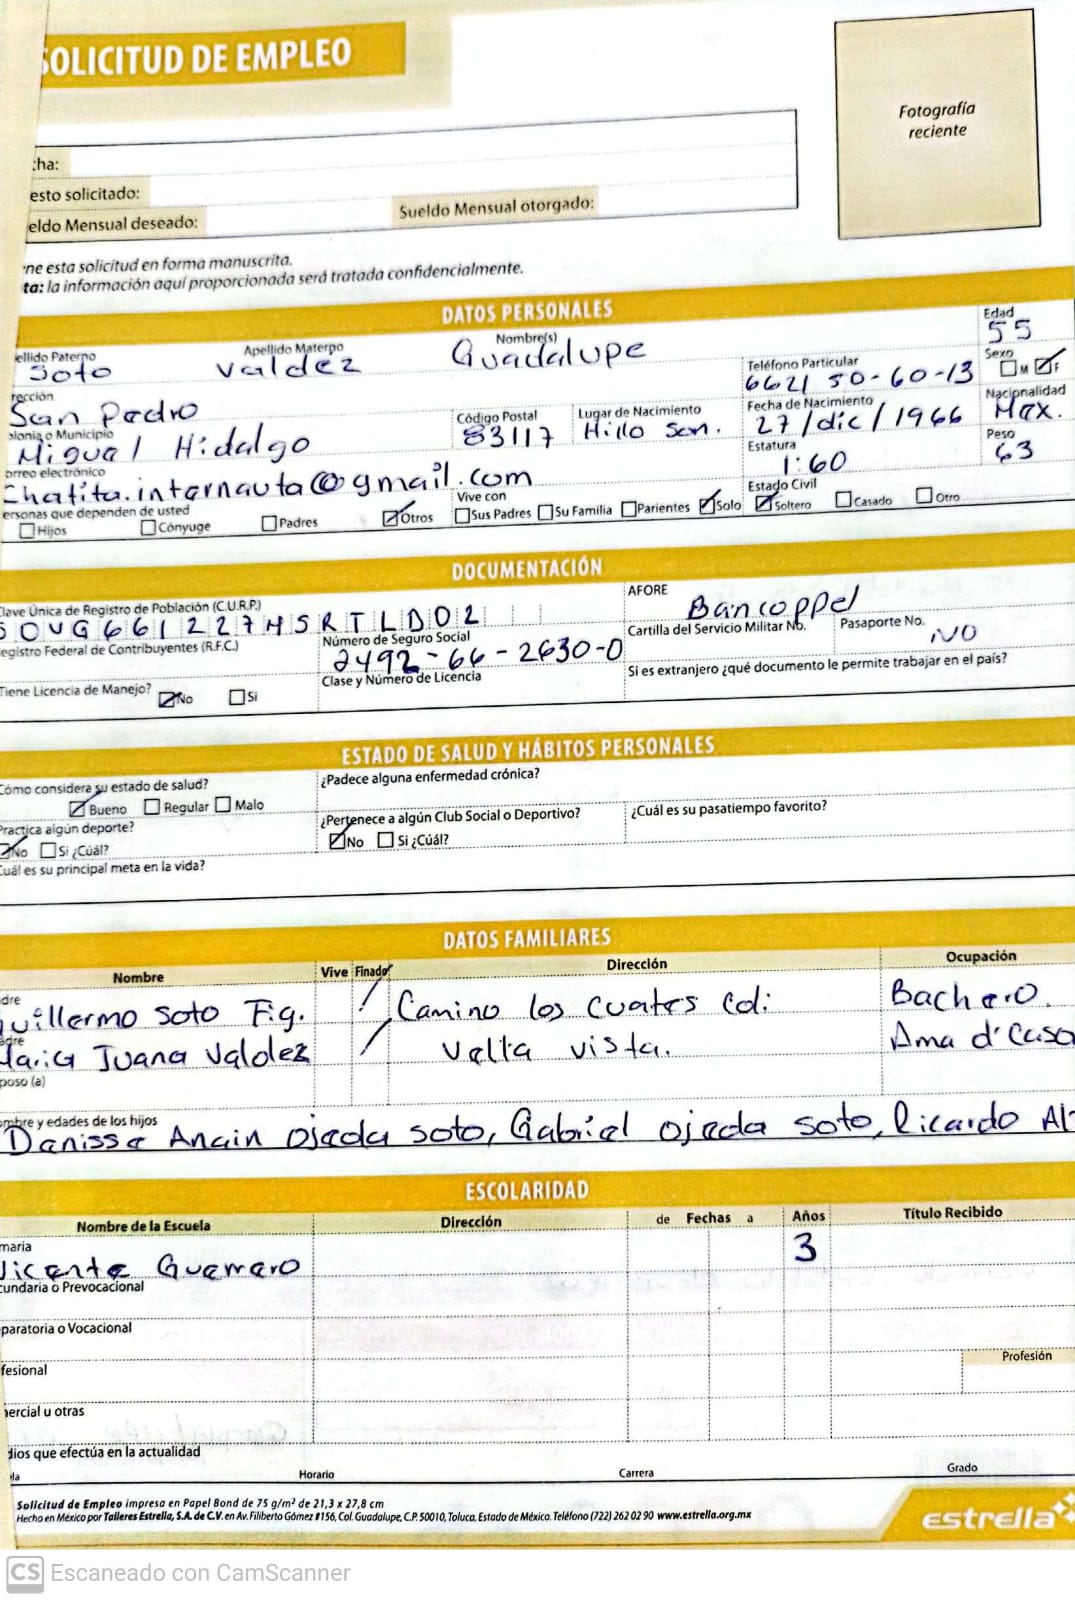 SOLICITUD DE EMPLEO
Fotografía
reciente
cha:
esto solicitado:
eldo Mensual deseado:
Sueldo Mensual otorgado:
ne esta solicitud en forma manuscrita.
ta: la información aquí proporcionada será tratada confidencialmente.
DATOS PERSONALES
ellido Paterno Apellido Materno Nombre(s) Edad
Soto Valdez Guadalupe 55
rección Teléfono Particular Sexo
San Pedro 6621 50-60-13 M F
olonia o Municipio Código Postal Lugar de Nacimiento Fecha de Nacimiento Nacionalidad
Miguel Hidalgo 83117 Hillo Son. 27/dic/1966 Mex.
orreo electrónico Estatura Peso
Chatita.internauta@gmail.com 1:60 63
ersonas que dependen de usted Vive con Estado Civil
Hijos Cónyuge Padres Otros Sus Padres Su Familia Parientes Solo Soltero Casado Otro
DOCUMENTACIÓN
Clave Única de Registro de Población (C.U.R.P.) AFORE
SOVG661227MSRTLD02 Bancoppel
egistro Federal de Contribuyentes (R.F.C.) Número de Seguro Social Cartilla del Servicio Militar No. Pasaporte No.
2492-66-2630-0 NO
Tiene Licencia de Manejo? Clase y Número de Licencia Si es extranjero ¿qué documento le permite trabajar en el país?
No Si
ESTADO DE SALUD Y HÁBITOS PERSONALES
Cómo considera su estado de salud? ¿Padece alguna enfermedad crónica?
Bueno Regular Malo
Practica algún deporte? ¿Pertenece a algún Club Social o Deportivo? ¿Cuál es su pasatiempo favorito?
No Si ¿Cuál? No Si ¿Cuál?
Cuál es su principal meta en la vida?
DATOS FAMILIARES
Nombre Vive Finado Dirección Ocupación
dre
Guillermo Soto Fig. / Camino los Cuates Col: Bachero.
adre
Maria Juana Valdez / Vella vista. Ama d' Casa
poso (a)
ombre y edades de los hijos
Danissa Anain Ojeda Soto, Gabriel Ojeda Soto, Ricardo Al
ESCOLARIDAD
Nombre de la Escuela Dirección de Fechas a Años Título Recibido
maria
Vicente Guerrero 3
cundaria o Prevocacional
paratoria o Vocacional
fesional Profesión
nercial u otras
dios que efectúa en la actualidad
la Horario Carrera Grado
Solicitud de Empleo impresa en Papel Bond de 75 g/m² de 21,3 x 27,8 cm
Hecho en México por Talleres Estrella, S.A. de C.V. en Av. Filiberto Gómez #156, Col. Guadalupe, C.P. 50010, Toluca, Estado de México. Teléfono (722) 262 02 90 www.estrella.org.mx
estrella
CS Escaneado con CamScanner